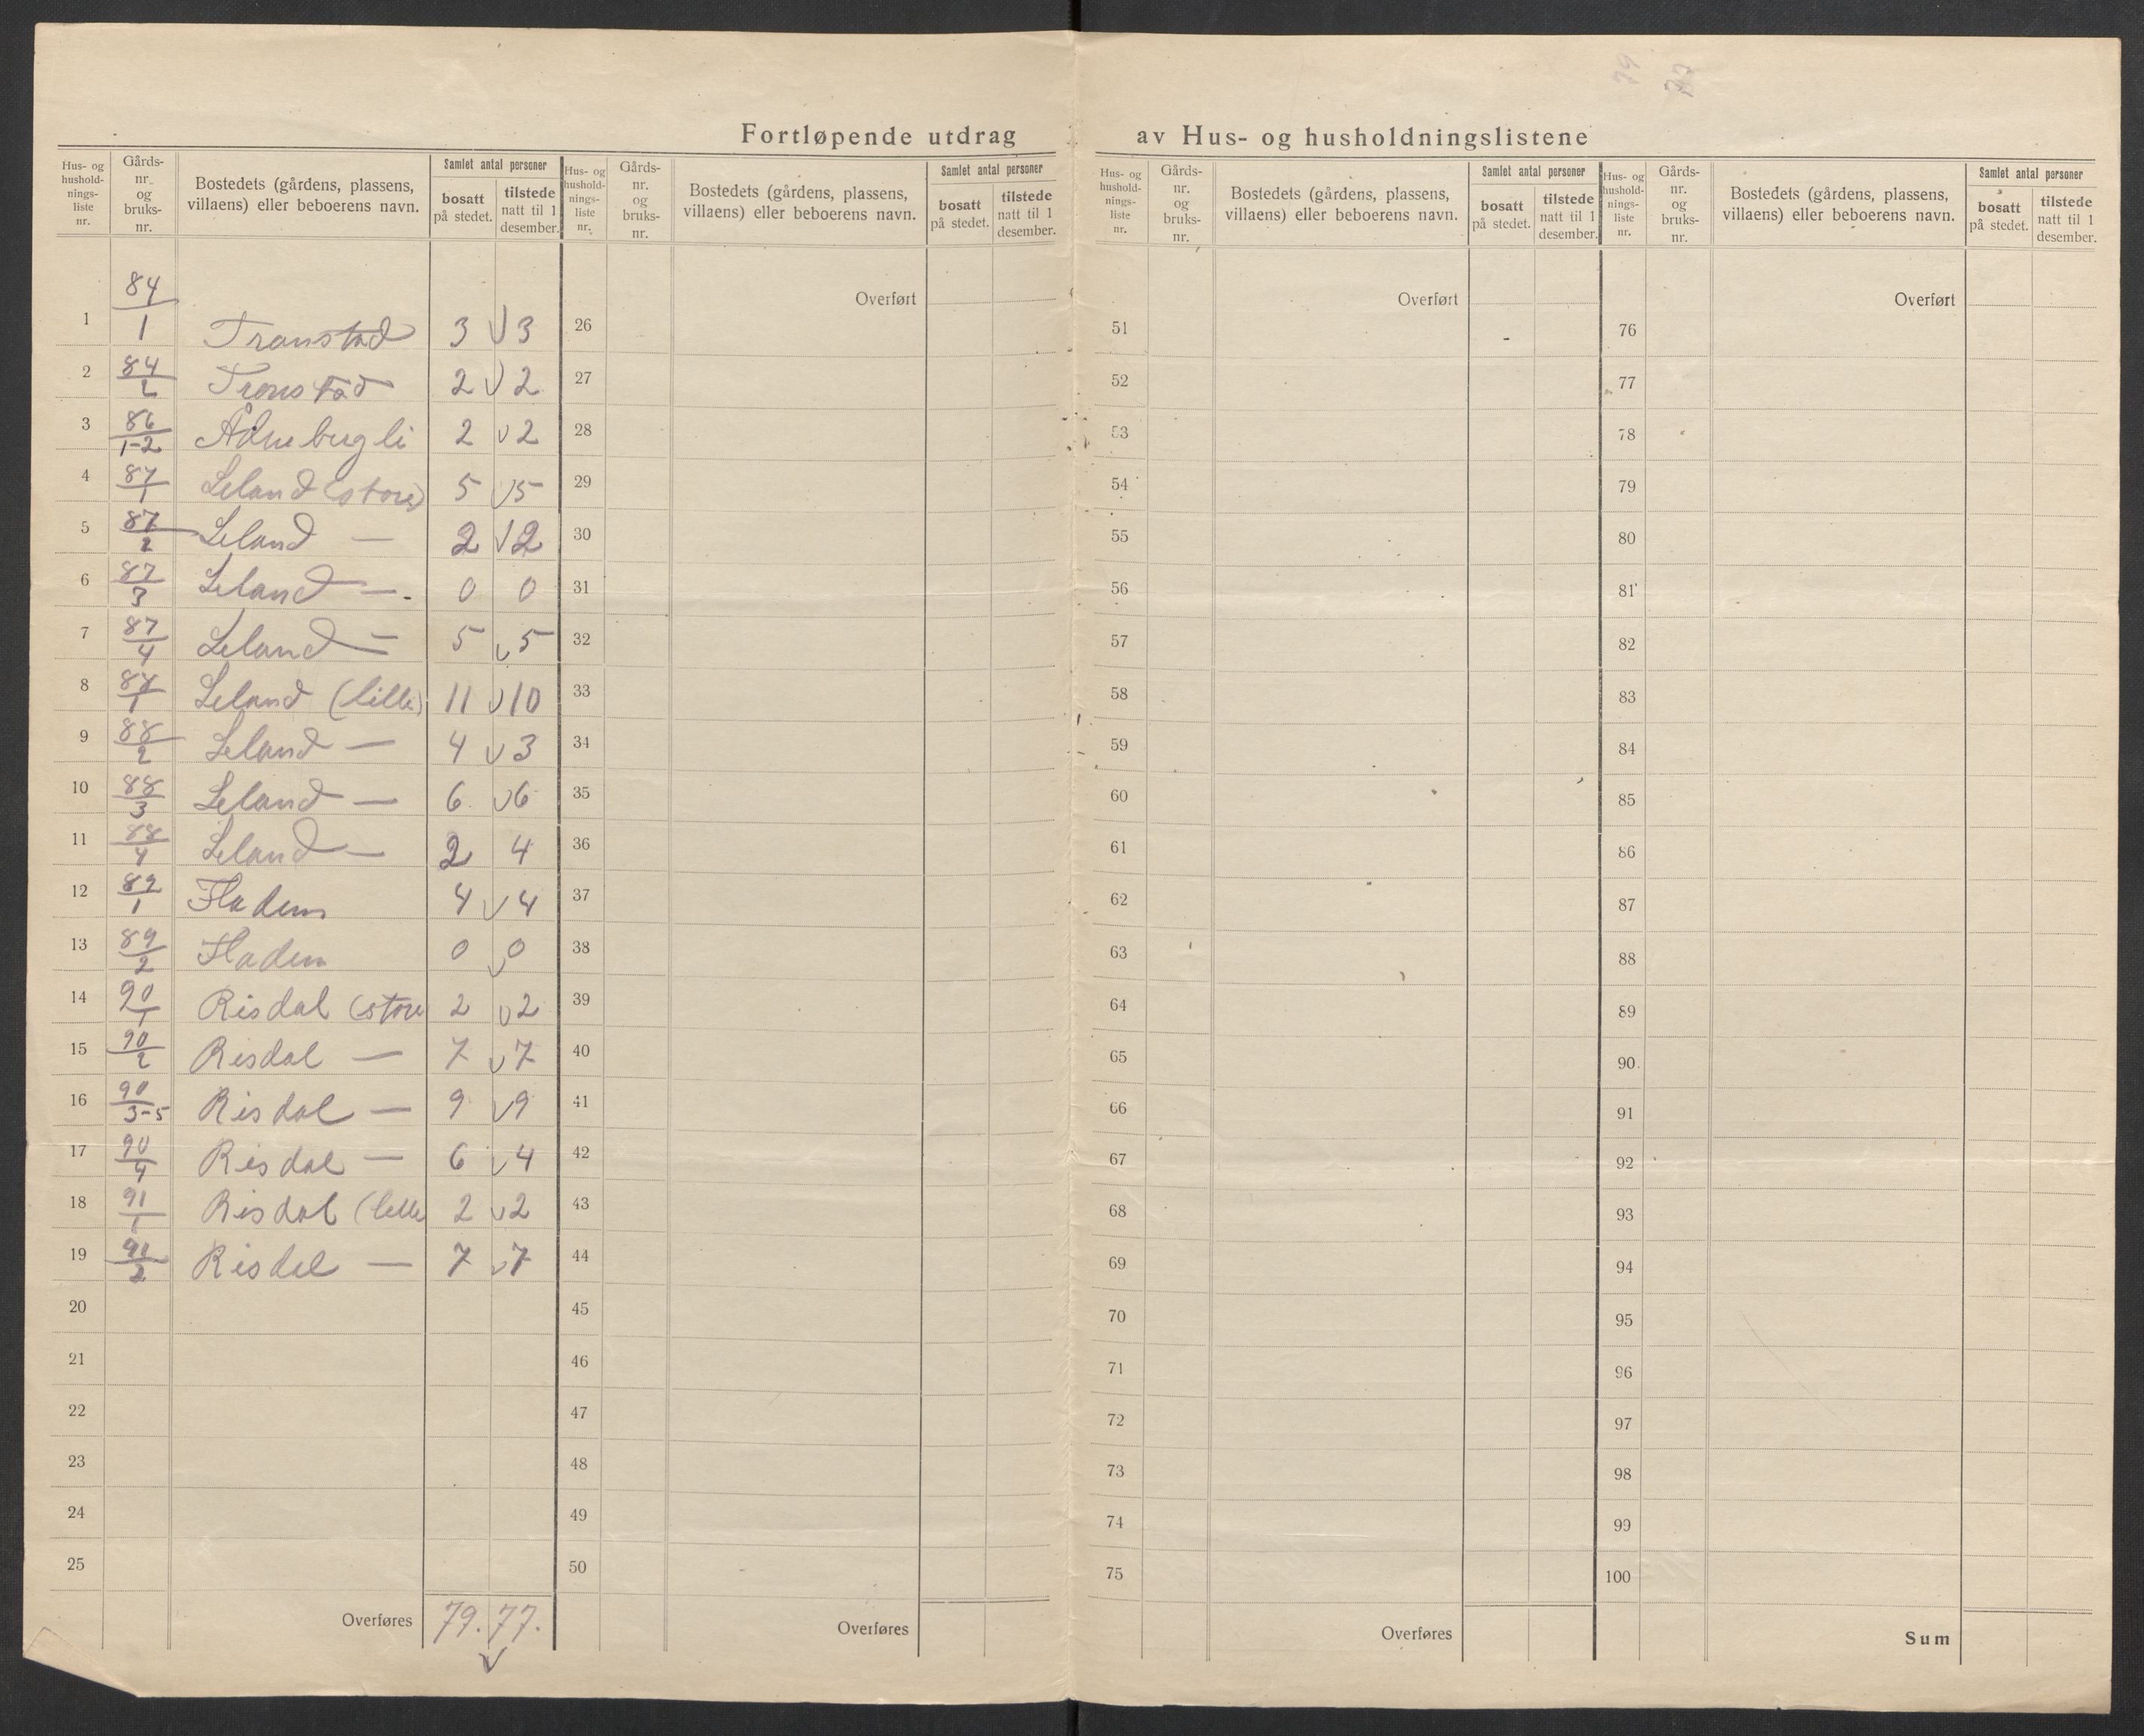 79 77
Fortløpende utdrag av Hus- og husholdningslistene
Hus- og hushold-nings-liste nr. Gårds-nr. og bruks-nr. Bostedets (gårdens, plassens, villaens) eller beboerens navn. Samlet antal personer bosatt på stedet. tilstede natt til 1 desember.
Hus- og hushold-nings-liste nr. Gårds-nr. og bruks-nr. Bostedets (gårdens, plassens, villaens) eller beboerens navn. Samlet antal personer bosatt på stedet. tilstede natt til 1 desember.
Hus- og hushold-nings-liste nr. Gårds-nr. og bruks-nr. Bostedets (gårdens, plassens, villaens) eller beboerens navn. Samlet antal personer bosatt på stedet. tilstede natt til 1 desember.
Hus- og hushold-nings-liste nr. Gårds-nr. og bruks-nr. Bostedets (gårdens, plassens, villaens) eller beboerens navn. Samlet antal personer bosatt på stedet. tilstede natt til 1 desember.
Overført Overført Overført
1 84/1 Tronstad 3 √ 3 26 51 76
2 84/2 Tronstad 2 √ 2 27 52 77
3 86/1-2 2 √ 2 28 53 78
4 87/1 Leland (store) 5 √ 5 29 54 79
5 87/2 Leland — 2 √ 2 30 55 80
6 87/3 Leland — 0 0 31 56 81
7 87/4 Leland — 5 √ 5 32 57 82
8 Leland (lille) 11 √ 10 33 58 83
9 88/2 Leland — 4 √ 3 34 59 84
10 88/3 Leland — 6 √ 6 35 60 85
11 88/4 Leland — 2 4 36 61 86
12 89/1 Fladem 4 √ 4 37 62 87
13 89/2 Fladem 0 √ 0 38 63 88
14 90/1 Risdal (store 2 √ 2 39 64 89
15 90/2 Risdal — 7 √ 7 40 65 90
16 90/3-5 Risdal — 9 √ 9 41 66 91
17 90/4 Risdal — 6 √ 4 42 67 92
18 91/1 Risdal (lille 2 √ 2 43 68 93
19 91/2 Risdal — 7 √ 7 44 69 94
20 45 70 95
21 46 71 96
22 47 72 97
23 48 73 98
24 49 74 99
25 50 75 100
Overføres 79. 77. Overføres Overføres Sum
√